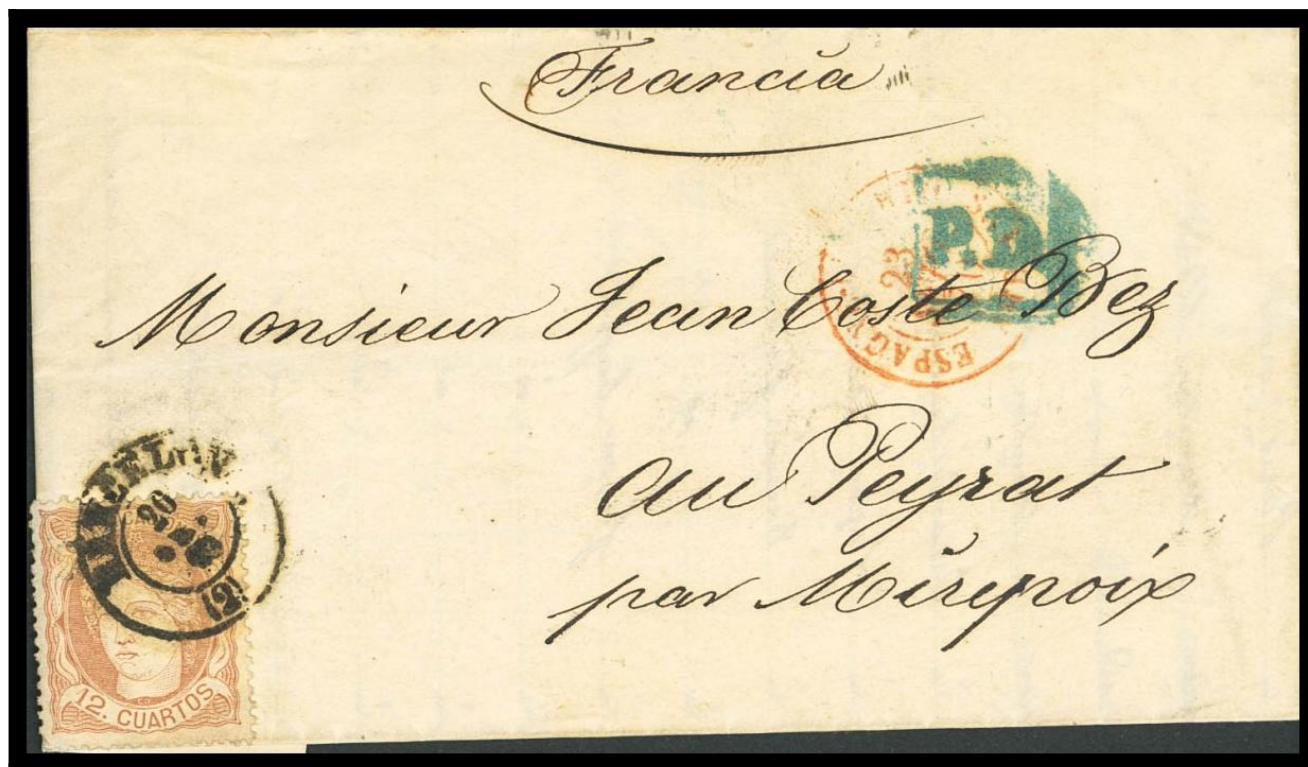 Francia
P.D.
23
ESPAGN
Monsieur Jean Coste Bez
au Peyrat
par Mirepoix
20
(2)
12. CUARTOS